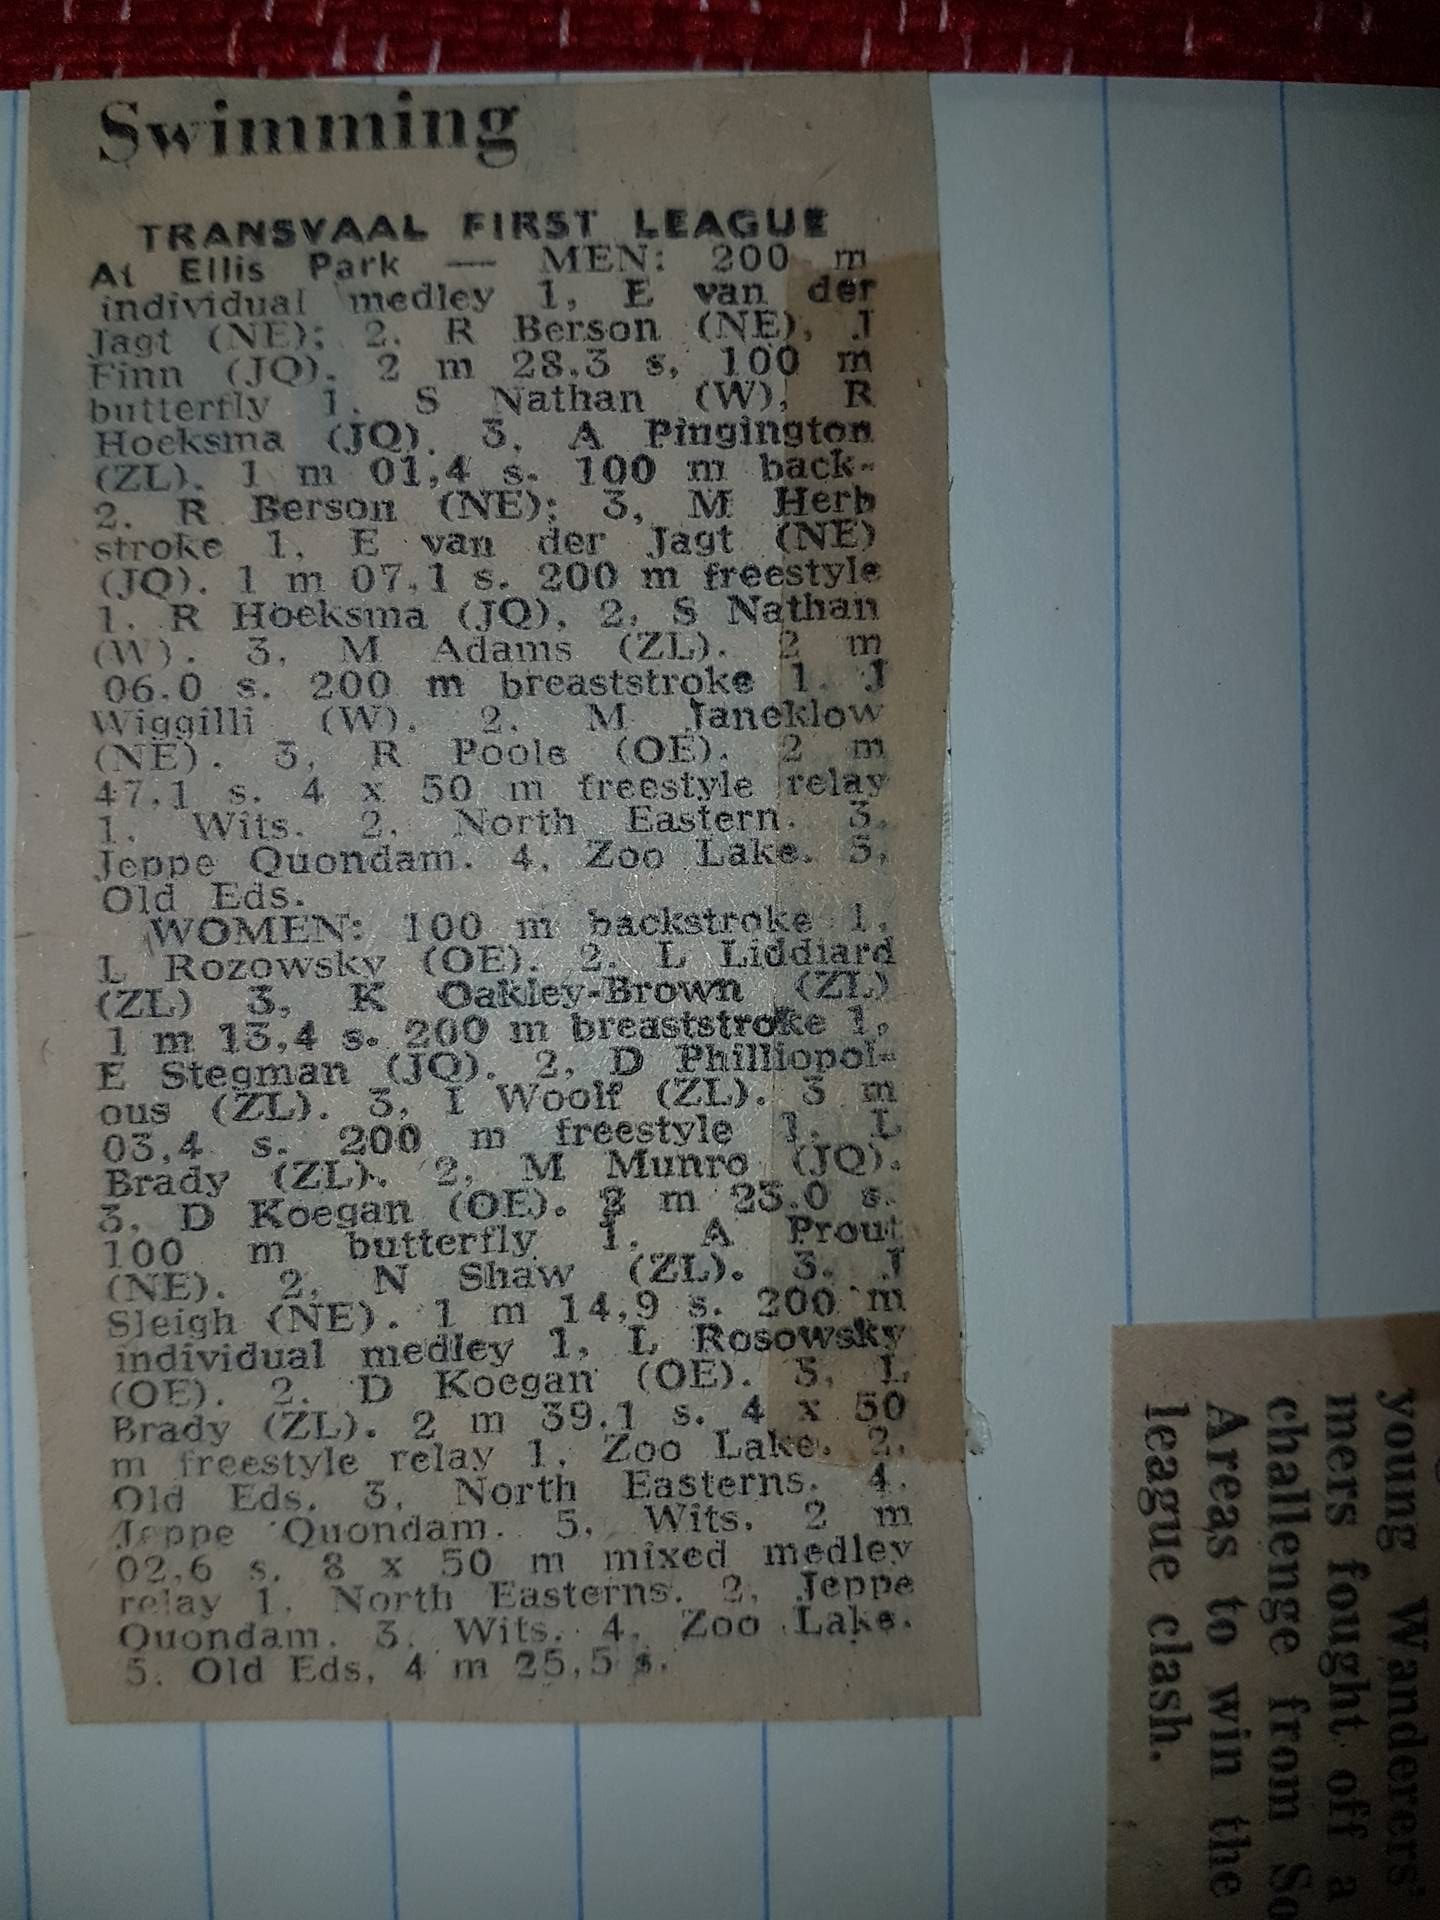 Swimming
TRANSVAAL FIRST LEAGUE
At Ellis Park — MEN: 200 m
individual medley 1, E van der
Jagt (NE); 2. R Berson (NE), J
Finn (JQ). 2 m 28.3 s, 100 m
butterfly 1. S Nathan (W), R
Hoeksma (JQ). 3, A Pingington
(ZL). 1 m 01,4 s. 100 m back-
2. R Berson (NE); 3, M Herb
stroke 1, E van der Jagt (NE)
(JQ). 1 m 07,1 s. 200 m freestyle
1. R Hoeksma (JQ), 2, S Nathan
(W). 3, M Adams (ZL). 2 m
06.0 s. 200 m breaststroke 1. J
Wiggilli (W). 2. M Janeklow
(NE). 3, R Poole (OE). 2 m
47,1 s. 4 x 50 m freestyle relay
1. Wits. 2, North Eastern. 3.
Jeppe Quondam. 4, Zoo Lake. 5,
Old Eds.
WOMEN: 100 m backstroke 1,
L Rozowsky (OE). 2. L Liddiard
(ZL) 3, K Oakley-Brown (ZL)
1 m 13,4 s. 200 m breaststroke 1,
E Stegman (JQ). 2, D Philliopol-
ous (ZL). 3, I Woolf (ZL). 3 m
03,4 s. 200 m freestyle 1. L
Brady (ZL). 2, M Munro (JQ).
3, D Koegan (OE). 2 m 23.0 s.
100 m butterfly 1. A Prout
(NE). 2, N Shaw (ZL). 3. J
Sleigh (NE). 1 m 14,9 s. 200 m
individual medley 1, L Rosowsky
(OE). 2. D Koegan (OE). 3, L
Brady (ZL). 2 m 39.1 s. 4 x 50
m freestyle relay 1, Zoo Lake. 2.
Old Eds. 3, North Easterns. 4.
Jeppe Quondam. 5, Wits. 2 m
02,6 s. 8 x 50 m mixed medley
relay 1. North Easterns. 2, Jeppe
Quondam. 3. Wits. 4, Zoo Lake.
5. Old Eds, 4 m 25,5 s.
young Wanderers'
mers fought off a
challenge from So
Areas to win the
league clash.